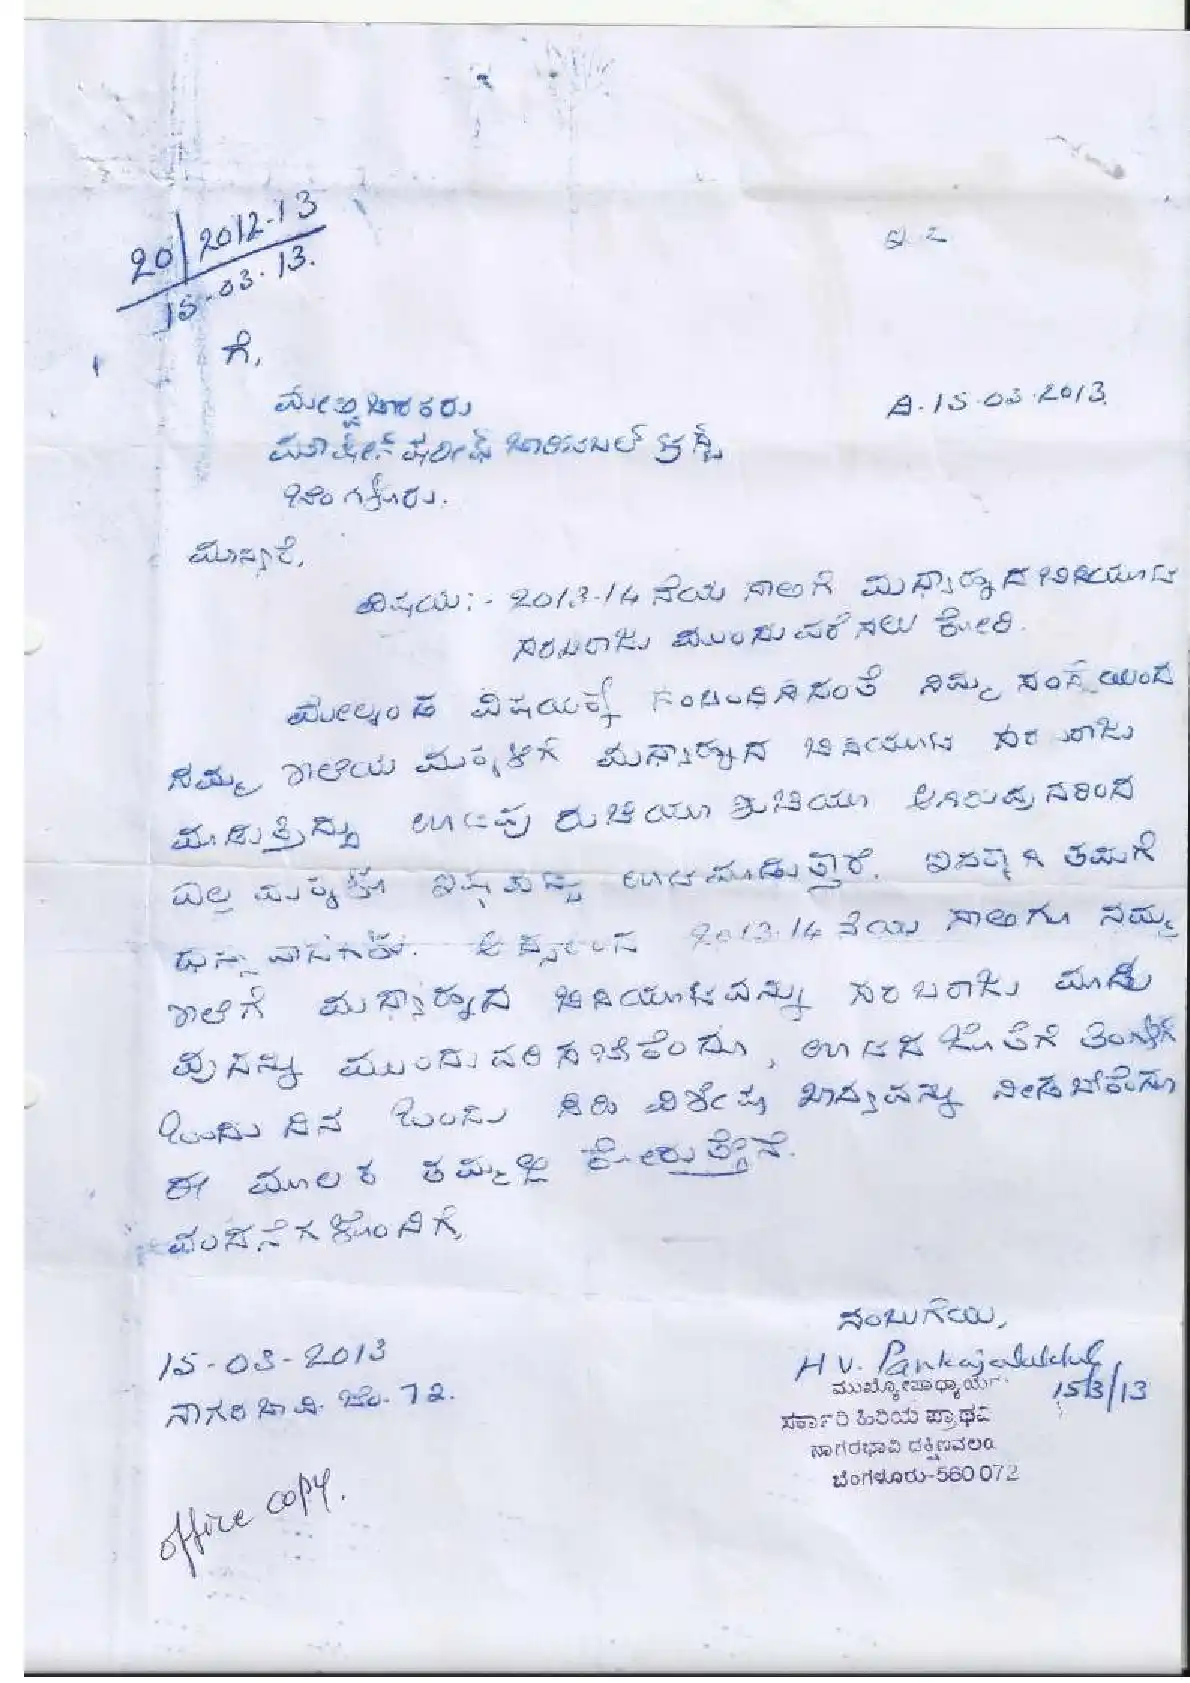 20/2012-13
15-03-13.
ಗೆ,
ದಿ.15-03-2013.
ಚಾರಿಟಬಲ್ ಟ್ರಸ್ಟ್
ಬೆಂಗಳೂರು.
ಮಾನ್ಯರೆ,
ವಿಷಯ:- 2013-14 ನೆಯ ಸಾಲಿಗೆ ಮಧ್ಯಾಹ್ನದ ಬಿಸಿಯೂಟ
ಸರಬರಾಜು ಮುಂದುವರೆಸಲು ಕೋರಿ.
ಮೇಲ್ಕಂಡ ವಿಷಯಕ್ಕೆ ಸಂಬಂಧಿಸಿದಂತೆ ನಿಮ್ಮ ಸಂಸ್ಥೆಯಿಂದ
ನಮ್ಮ ಶಾಲೆಯ ಮಕ್ಕಳಿಗೆ ಮಧ್ಯಾಹ್ನದ ಬಿಸಿಯೂಟ ಸರಬರಾಜು
ಮಾಡುತ್ತಿದ್ದು ಊಟವು ರುಚಿಯೂ ಶುಚಿಯೂ ಆಗಿರುವುದರಿಂದ
ಎಲ್ಲ ಮಕ್ಕಳೂ ಇಷ್ಟಪಟ್ಟು ಊಟಮಾಡುತ್ತಾರೆ. ಇದಕ್ಕಾಗಿ ತಮಗೆ
ಧನ್ಯವಾದಗಳು. 2013-14 ನೆಯ ಸಾಲಿಗೂ ನಮ್ಮ
ಶಾಲೆಗೆ ಮಧ್ಯಾಹ್ನದ ಬಿಸಿಯೂಟವನ್ನು ಸರಬರಾಜು ಮಾಡು
ವುದನ್ನು ಮುಂದುವರಿಸಬೇಕೆಂದೂ, ಊಟದ ಜೊತೆಗೆ ತಿಂಗಳಿಗೆ
ಒಂದು ದಿನ ಒಂದು ಸಿಹಿ ವಿಶೇಷ ಖಾದ್ಯವನ್ನು ನೀಡಬೇಕೆಂದೂ
ಈ ಮೂಲಕ ತಮ್ಮಲ್ಲಿ ಕೋರುತ್ತೇನೆ.
ವಂದನೆಗಳೊಂದಿಗೆ,
ನಂಬುಗೆಯ,
15-03-2013
H V. 15/3/13
ನಾಗರಬಾವಿ. ಬೆಂ. 72.
ಮುಖ್ಯೋಪಾಧ್ಯಾಯರ
ಸರ್ಕಾರಿ ಹಿರಿಯ ಪ್ರಾಥಮಿ
ನಾಗರಭಾವಿ ದಕ್ಷಿಣವಲಯ
ಬೆಂಗಳೂರು-560 072
office copy.